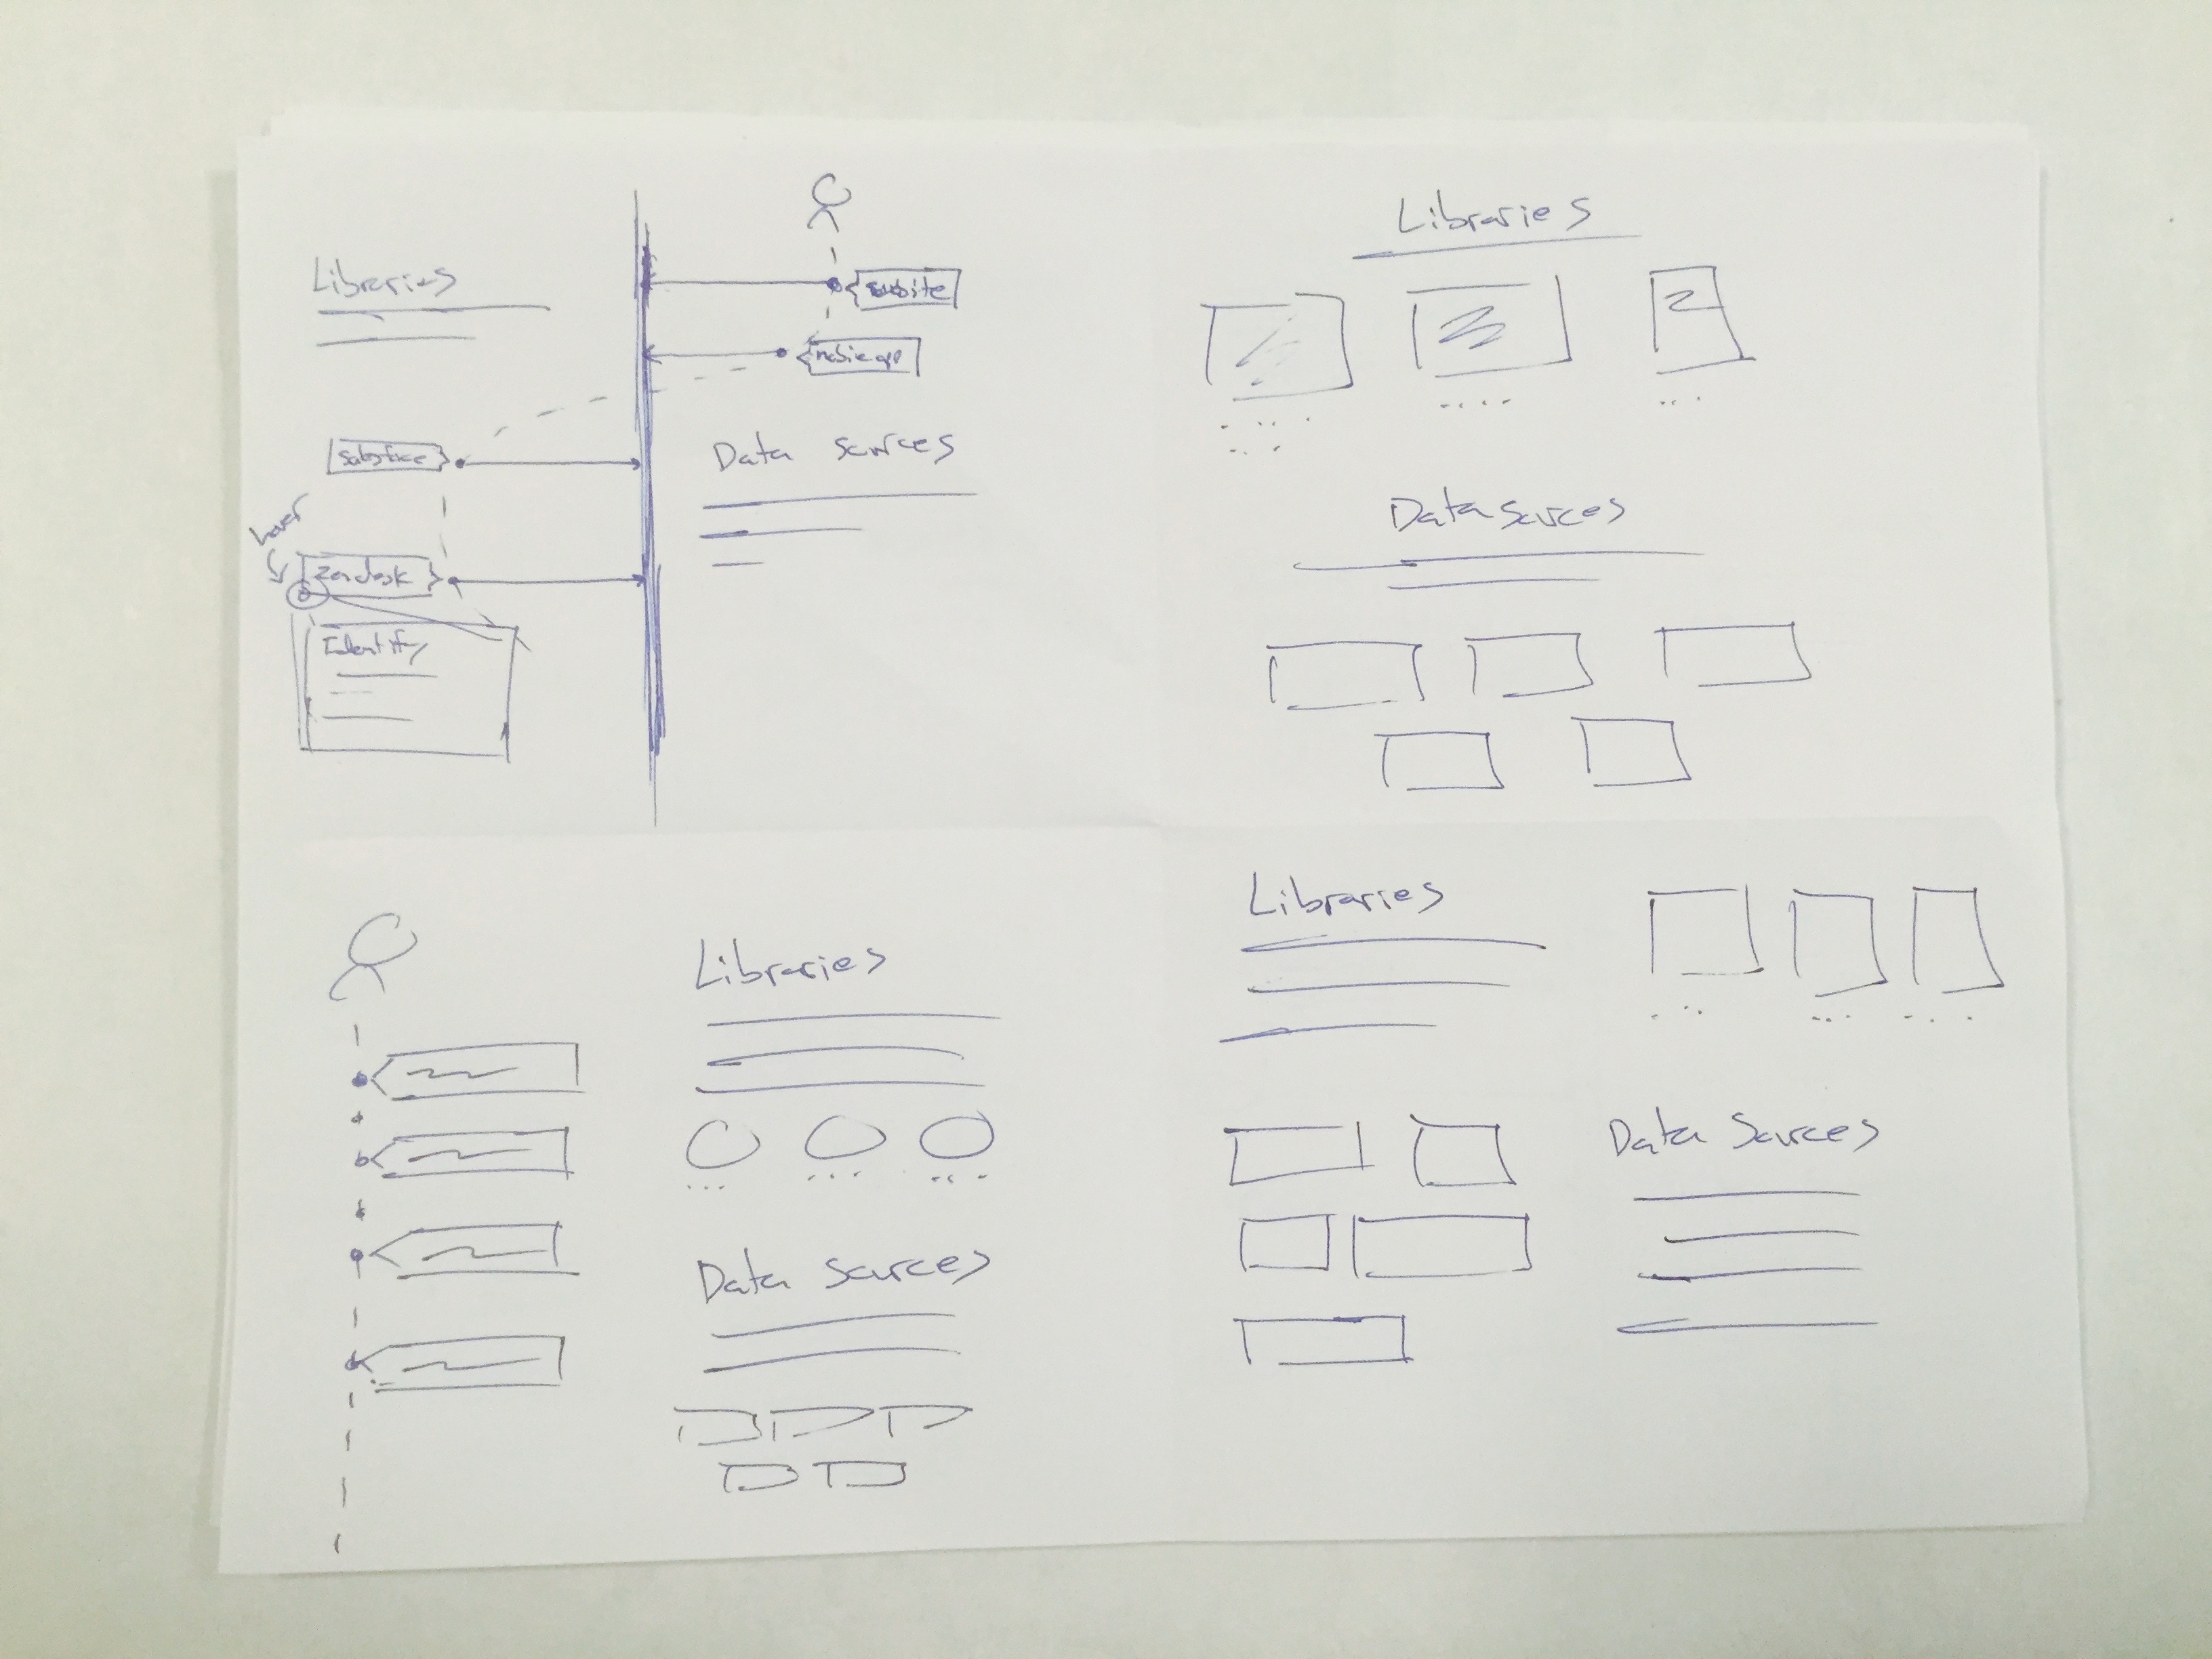 Libraries
website
mobile app
Data sources
Salesforce
hover
Zendesk
Identify
Libraries
Data sources
Libraries
Data sources
Libraries
Data Sources